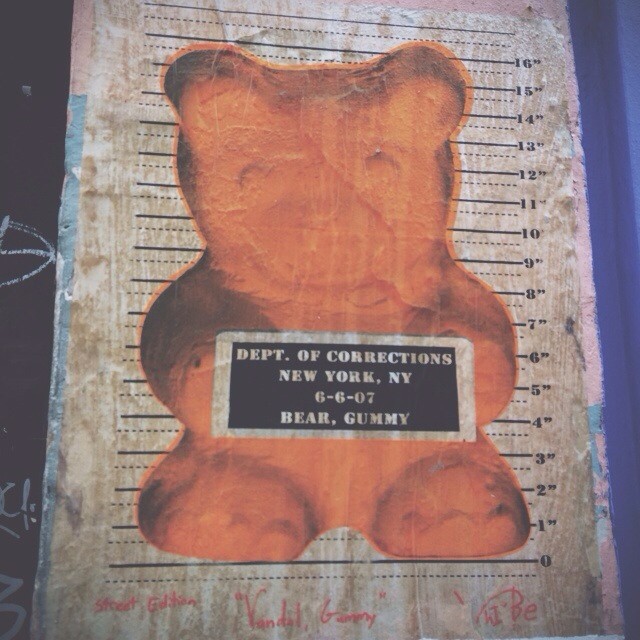 16"
15"
14"
13"
12"
11"
10"
9"
8"
7"
6"
5"
4"
3"
2"
1"
0
DEPT. OF CORRECTIONS
NEW YORK, NY
6-6-07
BEAR, GUMMY
Street Edition "Vandal, Gummy"